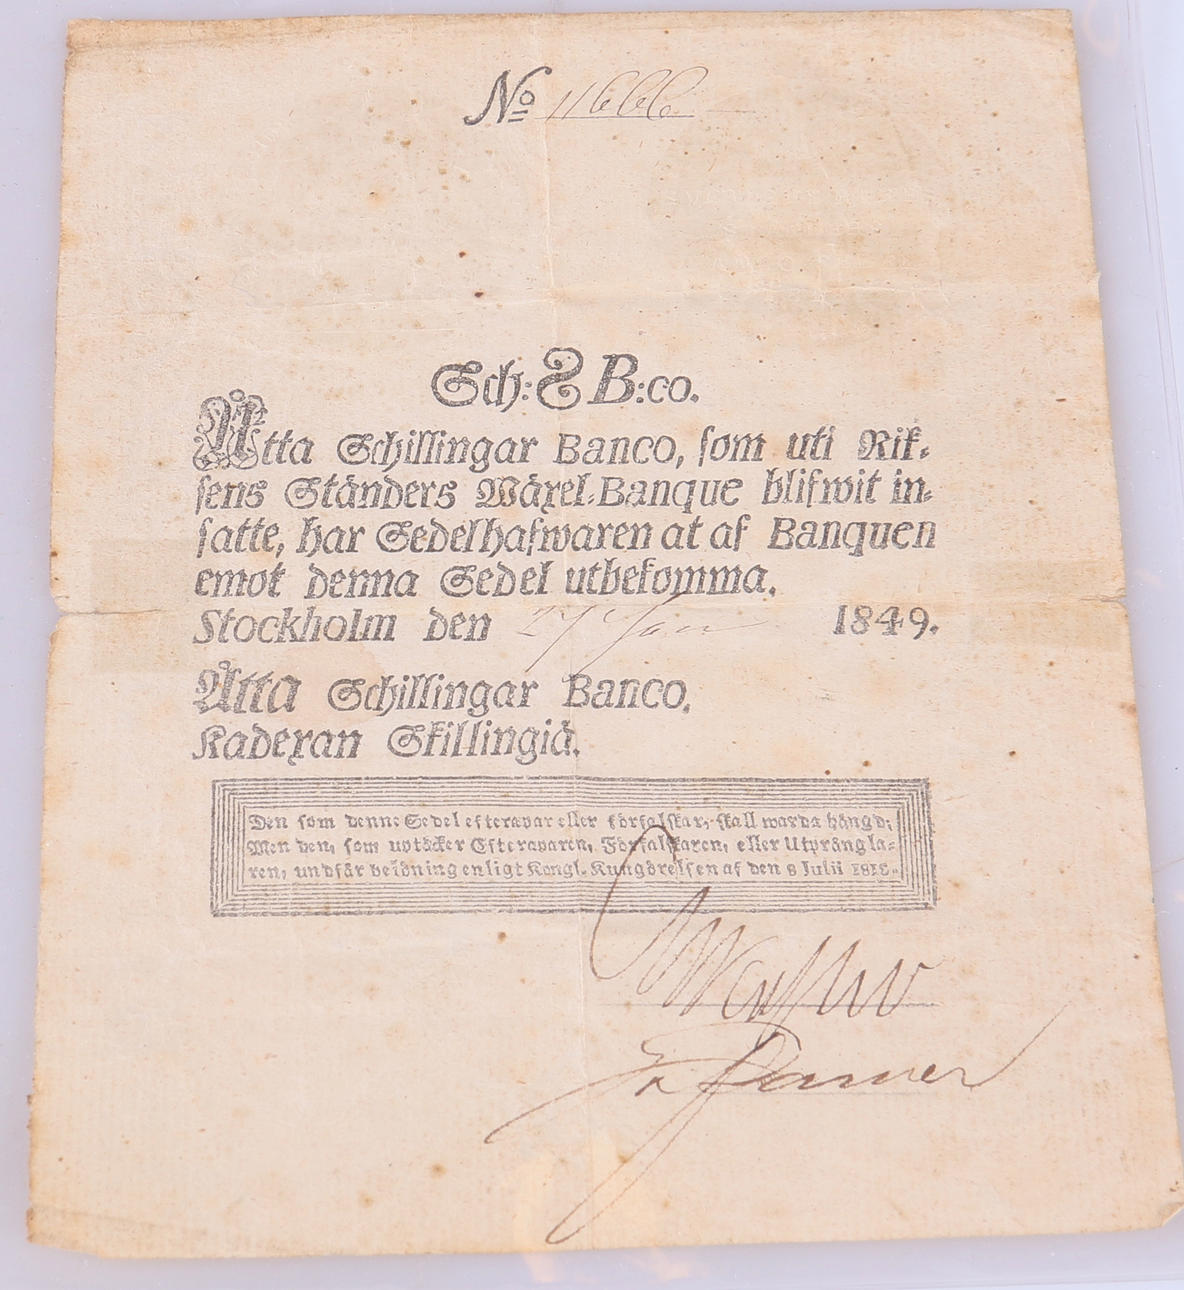 No 11666
Sch: 8 B:co.
Åtta Schillingar Banco, som uti Rik-
sens Ständers Wäxel-Banque blifwit in-
satte, har Sedelhafwaren at af Banquen
emot denna Sedel utbekomma.
Stockholm den 27 Jan 1849.
Åtta Schillingar Banco.
Kadexan Skillingiä.
Den som denne Sedel efterapar eller förfalskar, skall warda hängd;
Men den, som uptäcker Efteraparen, Förfalskaren, eller Utprångla-
ren, undfår belöning enligt Kongl. Kungörelsen af den 8 Julii